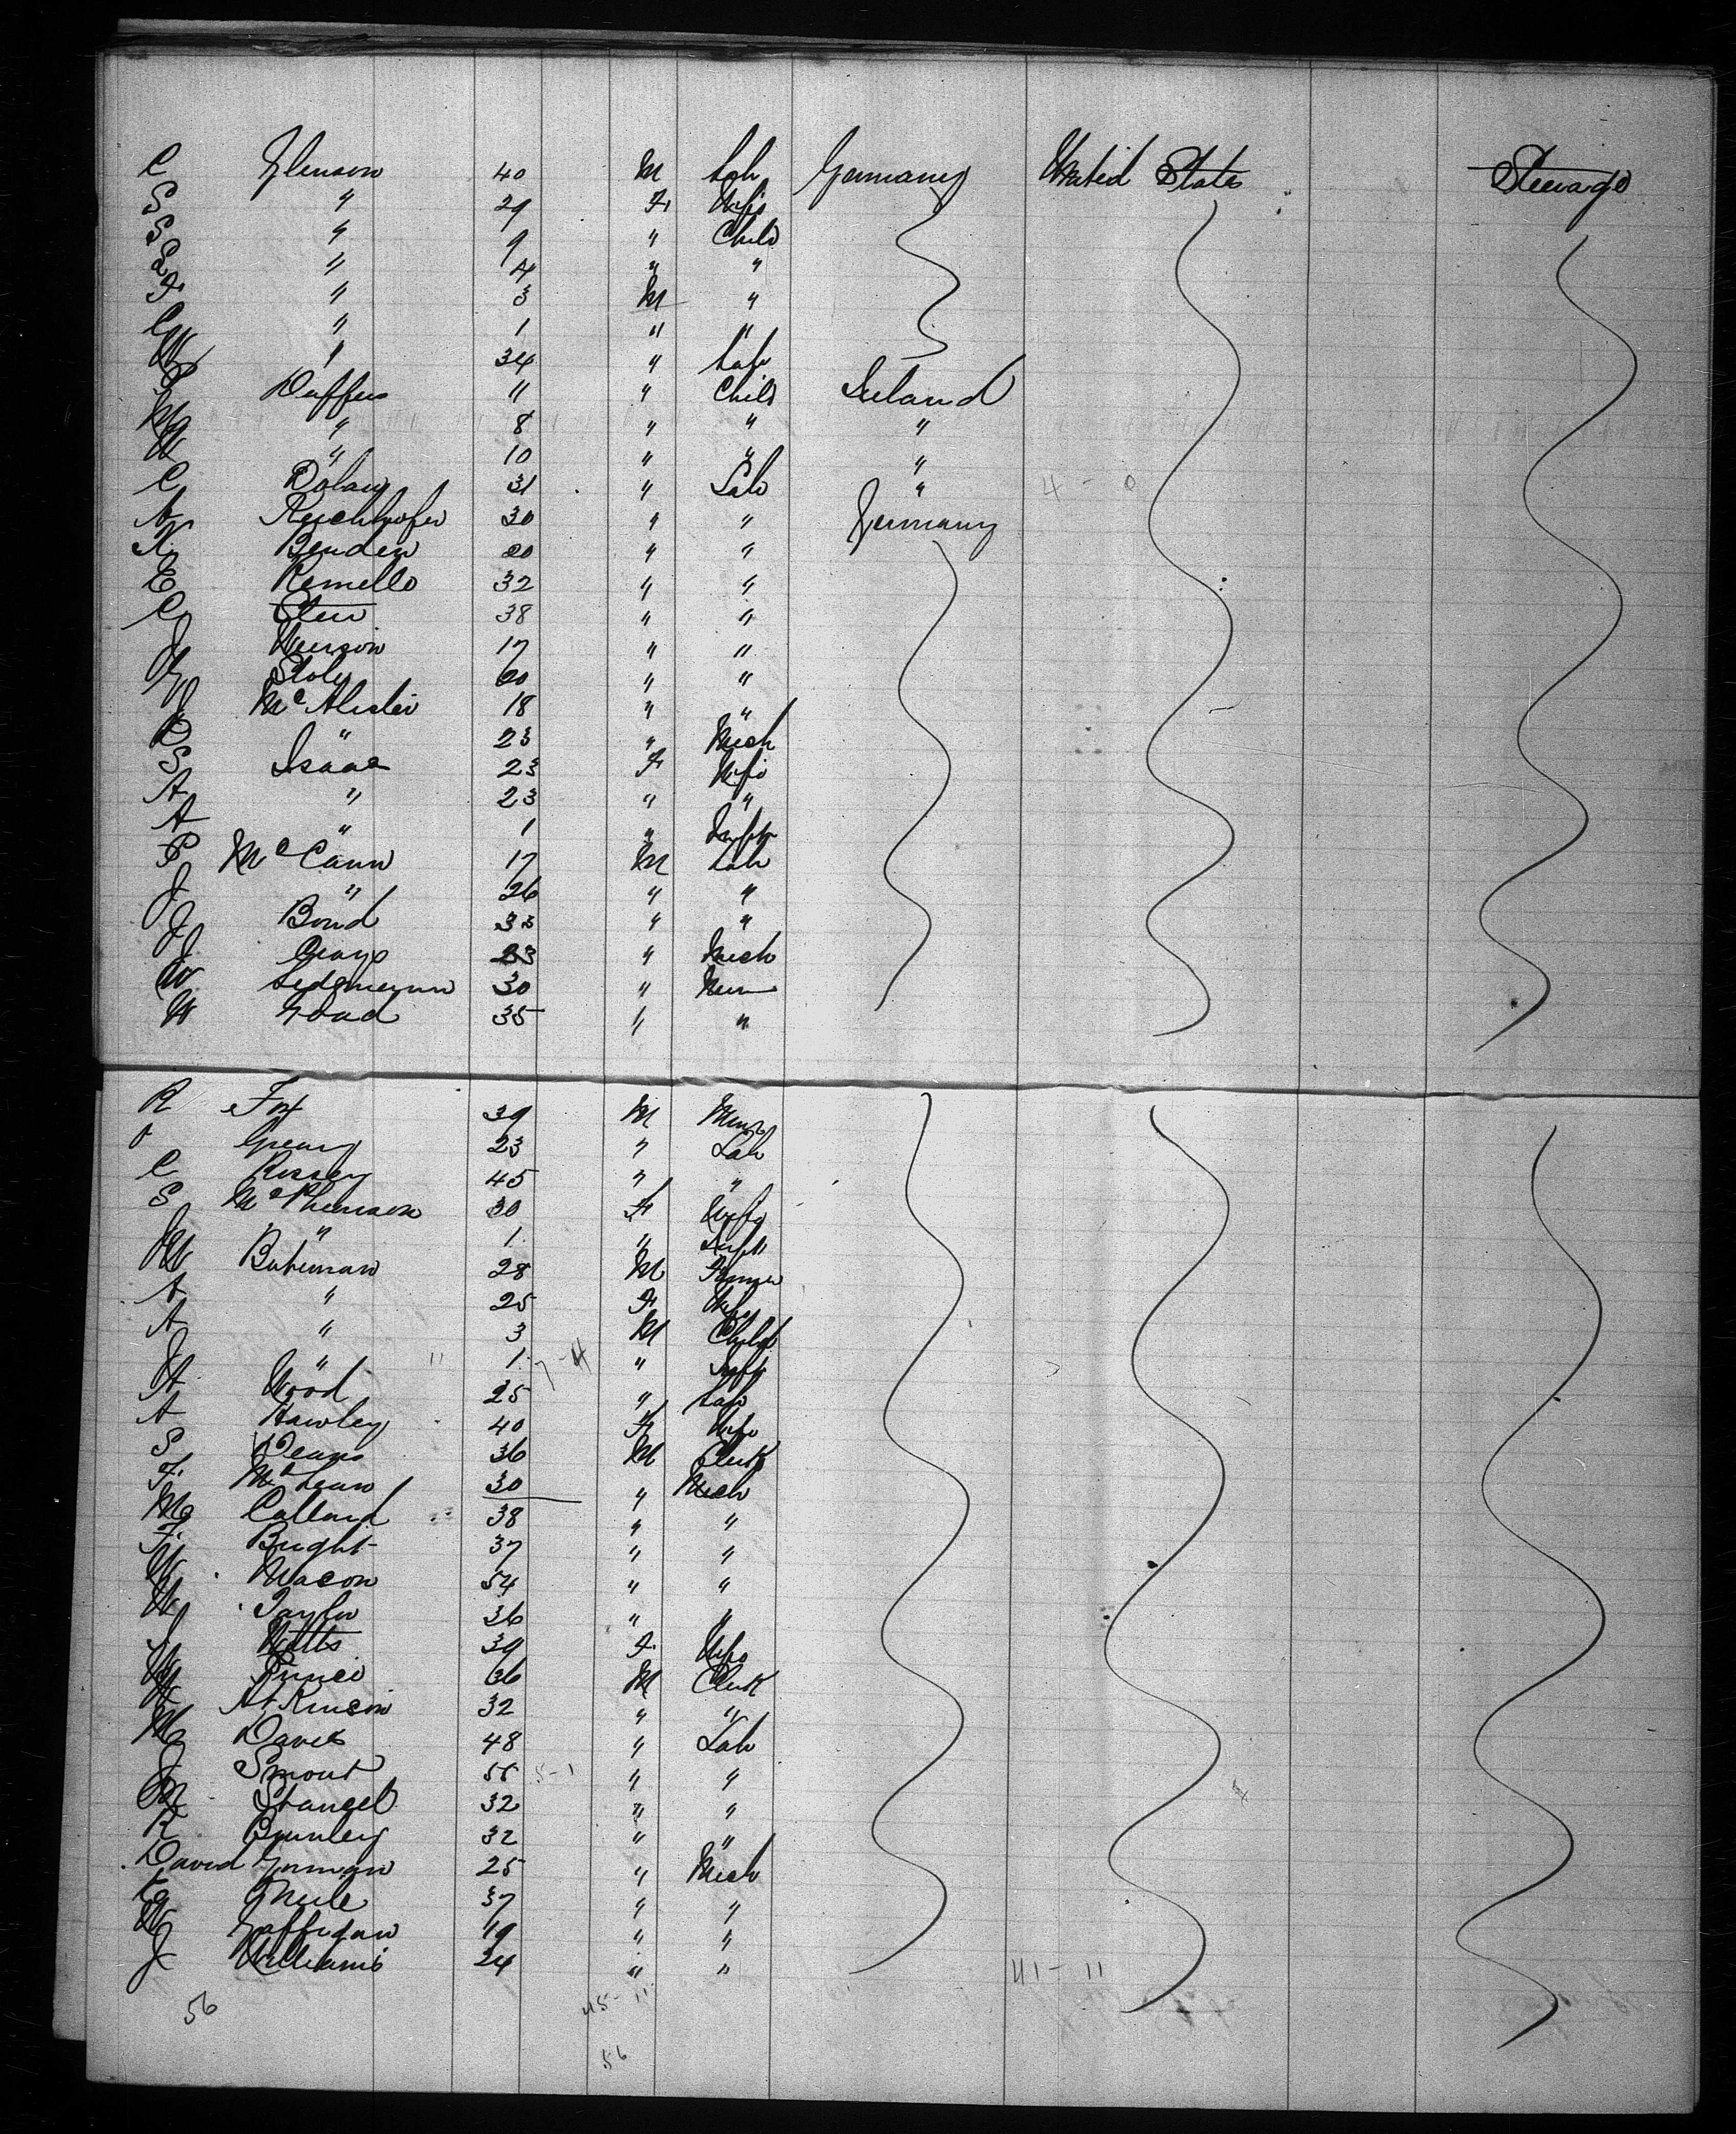 C Glenson 40 M Lab Germany United States Steerage
S " 29 F Wife
S " 9 " Child
E " 4 " "
F " 3 M "
C " 1 " "
W " 34 " Lab
P Duffus 11 " Child Ireland
M " 8 " " "
W " 10 " " "
C Dolan 31 " Lab " 4 - 0
A Reichhofer 30 " " Germany
N Benden 20 " "
E Remello 32 " "
C Stew 38 " "
J 17 " "
G Stoly 20 " "
J McAlister 18 " "
D " 23 " Mech
S Isaac 23 F Wife
A " 23 " "
A " 1 " Inft
P McCann 17 M Lab
J " 26 " "
J Bond 33 " "
J 23 " Mech
W 30 "
W Goad 35 " "
R Fox 39 M
23 " Lab
C 45 " "
S McPherson 30 F Wife
" 1 " Inft
W Bateman 28 M Farmer
A " 25 F Wife
A " 3 M Child
" 11 1 7-4 " Inft
H Wood 25 " Lab
A Hawley 40 F Wife
S Deans 36 M Clerk
F McLean 30 " Mech
M Callard 38 " "
F Bright 37 " "
W Mason 54 " "
W Taylor 36 " "
J Watts 39 F Wife
W Prince 36 M Clerk
W Atkinson 32 " "
M Davies 48 " Lab
J Smout 55 5-1 " "
M Stancel 32 " "
R Brunley 32 " "
David Gorman 25 " Mech
37 " "
W Gaffigan 19 " "
J Williams 24 " " 41-11
56 45-11
56